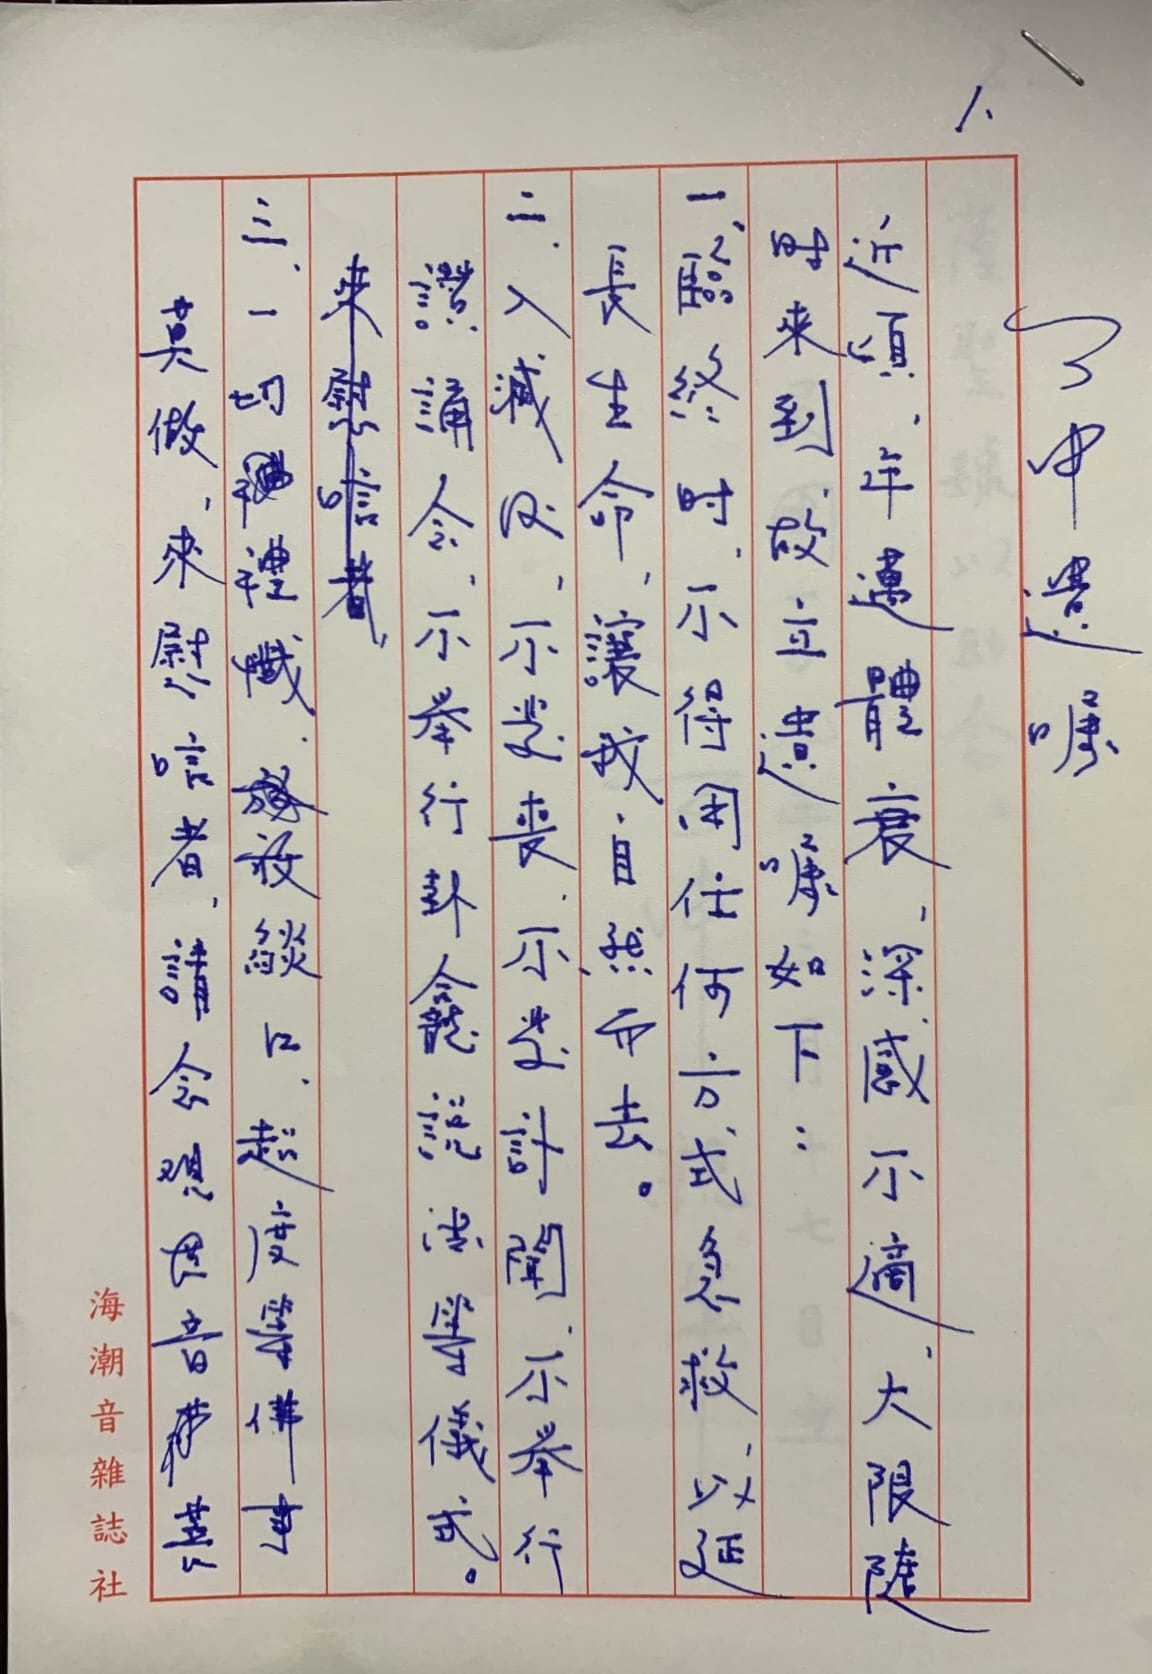 1、
了中遺囑
近頃，年邁體衰，深感不適，大限隨
時來到，故立遺囑如下：
一、臨終时，不得用任何方式急救，以延
長生命，讓我自然而去。
二、入滅後，不發喪，不發訃聞，不舉行
讚誦念，不舉行封龕說法等儀式。
來慰唁者，
三、一切禮懺、放燄口、超度等佛事
莫做，來慰唁者，請念觀世音菩薩
海潮音雜誌社